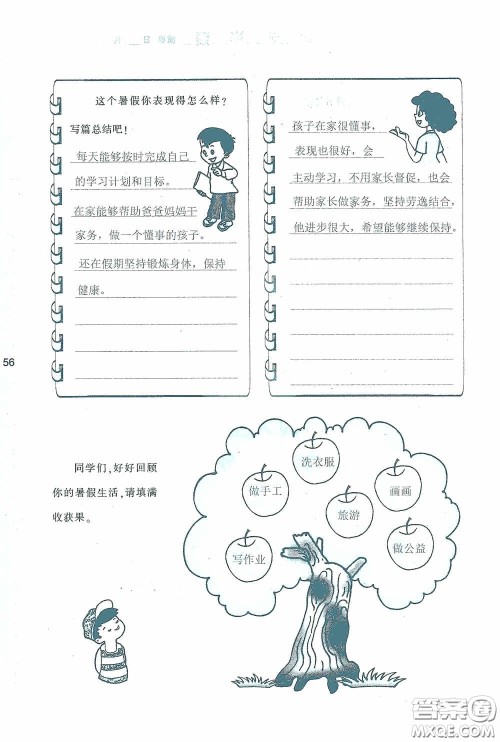 这个暑假你表现得怎么样?
写篇总结吧!
每天能够按时完成自己
的学习计划和目标。
在家能够帮助爸爸妈妈干
家务，做一个懂事的孩子。
还在假期坚持锻炼身体，保持
健康。
孩子在家很懂事，
表现也很好，会
主动学习，不用家长督促，也会
帮助家长做家务，坚持劳逸结合，
他进步很大，希望能够继续保持。
56
同学们，好好回顾
你的暑假生活，请填满
收获果。
洗衣服
做手工
画画
旅游
写作业
做公益
答案圈
MXQE.COM